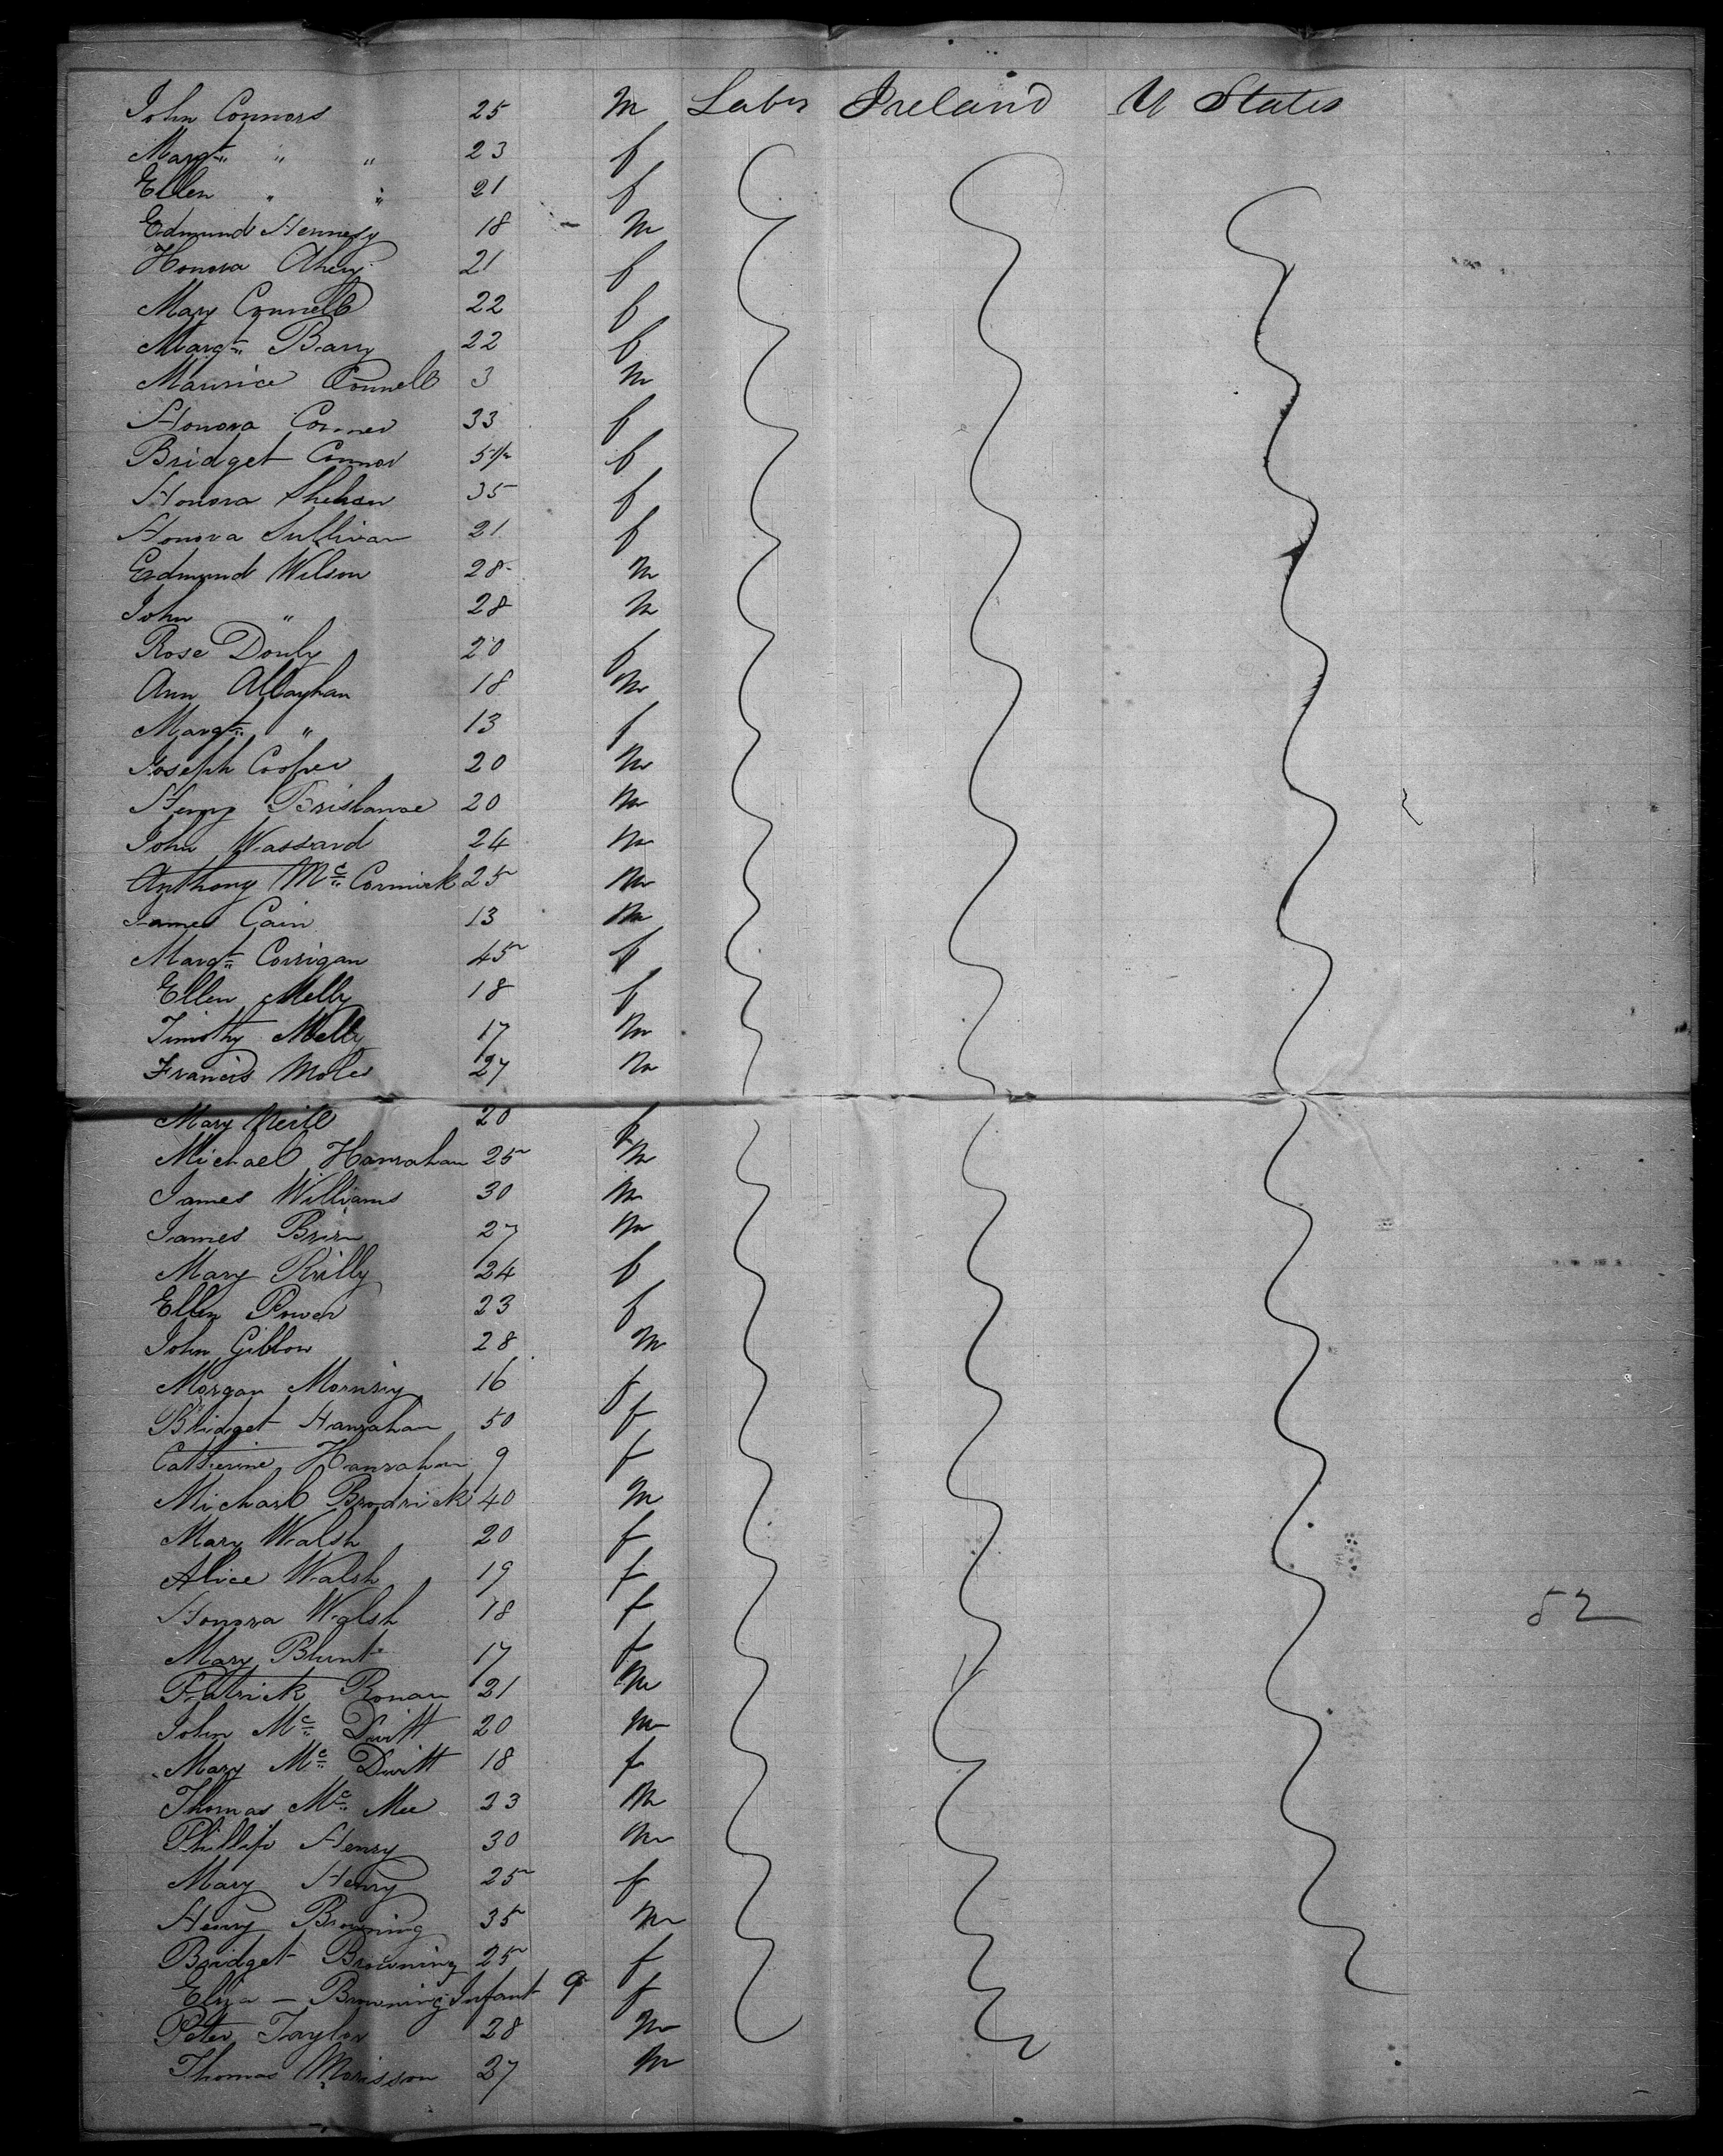 John Connors 25 m Labr Ireland U States
Margt " " 23 f
Ellen " " 21 f
Edmund Hennesy 18 m
Honora Ahern 21 f
Mary Connell 22 f
Margt Barry 22 f
Maurice Connell 3 m
Honora Connor 33 f
Bridget Connor 5 f
Honora Shehan 35 f
Honora Sullivan 21 f
Edmund Wilson 28 m
John " 28 m
Rose Donly 20 f
Ann Allaghan 18 m
Margt " 13 f
Joseph Cooper 20 m
Henry Brisbanae 20 m
John Wassard 24 m
Anthony Mc Cormick 25 m
James Cain 13 m
Margt Corrigan 45 f
Ellen Melly 18 f
Timothy Melly 17 m
Francis Moles 27 m
Mary Neill 20 f
Michael Hanrahan 25 m
James Williams 30 m
James Brien 27 m
Mary Rilly 24 f
Ellen Power 23 f
John Gibbon 28 m
Morgan Morrisy 16 f
Bridget Hanrahan 50 f
Catherine Hanrahan 9 f
Michael Brodrick 40 m
Mary Walsh 20 f
Alice Walsh 19 f
Honora Walsh 18 f
52
Mary Blunt 17 f
Patrick Ronan 21 m
John Mc Divitt 20 m
Mary Mc Divitt 18 f
Thomas Mc Mee 23 m
Phillip Henry 30 m
Mary Henry 25 f
Henry Browning 35 m
Bridget Browning 25 f
Eliza - Browning Infant 9 f
Peter Taylor 28 m
Thomas Morisson 27 m